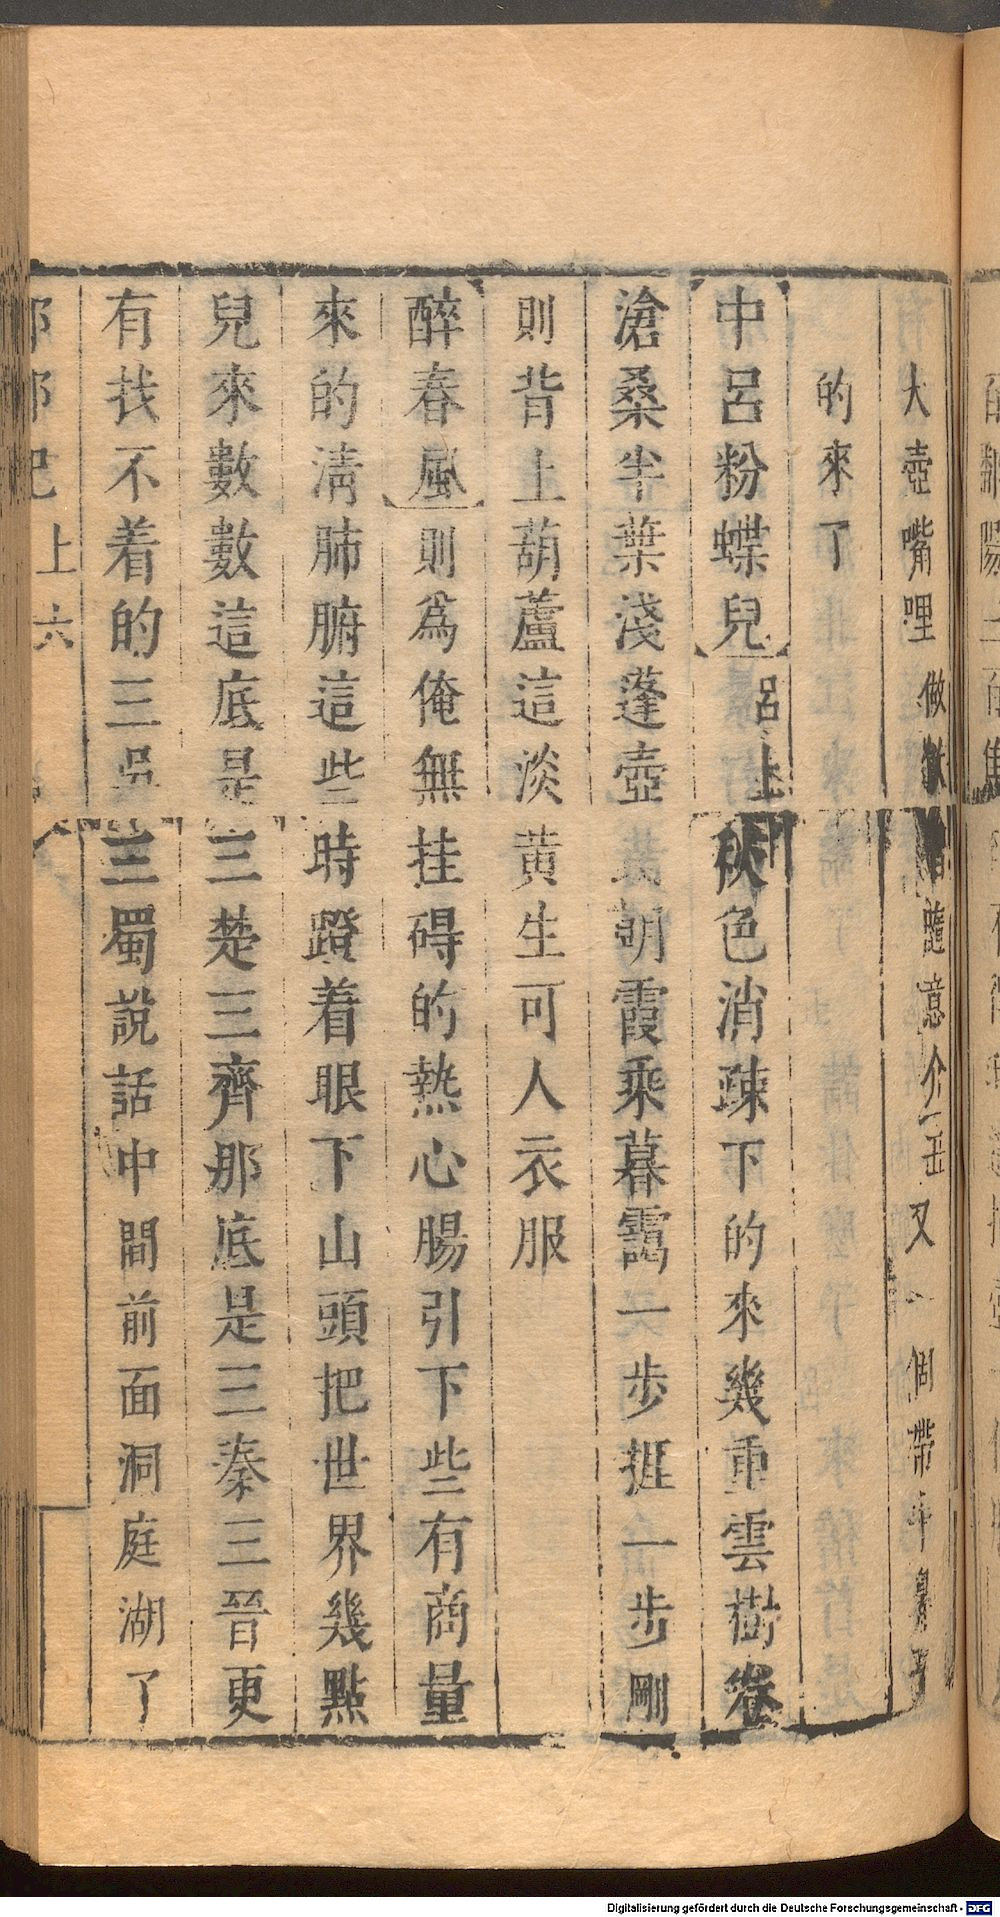 大壺嘴哩做獻 隨意介 又一個帶 鼻
的來了
中呂粉蝶兒呂上秋色消疎下的來幾重雲樹卷
滄桑半葉淺蓬壺 踐胡霞乘暮靄一步捱一步剛
則背上葫蘆這淡黃生可人衣服
醉春風則爲俺無挂碍的熱心腸引下些有商量
來的清肺腑這些時蹬着眼下山頭把世界幾點
兒來數數這底是三楚三齊那底是三秦三晉更
有找不着的三吳三蜀說話中間前面洞庭湖了
上 六
Digitalisierung gefördert durch die Deutsche Forschungsgemeinschaft - DFG